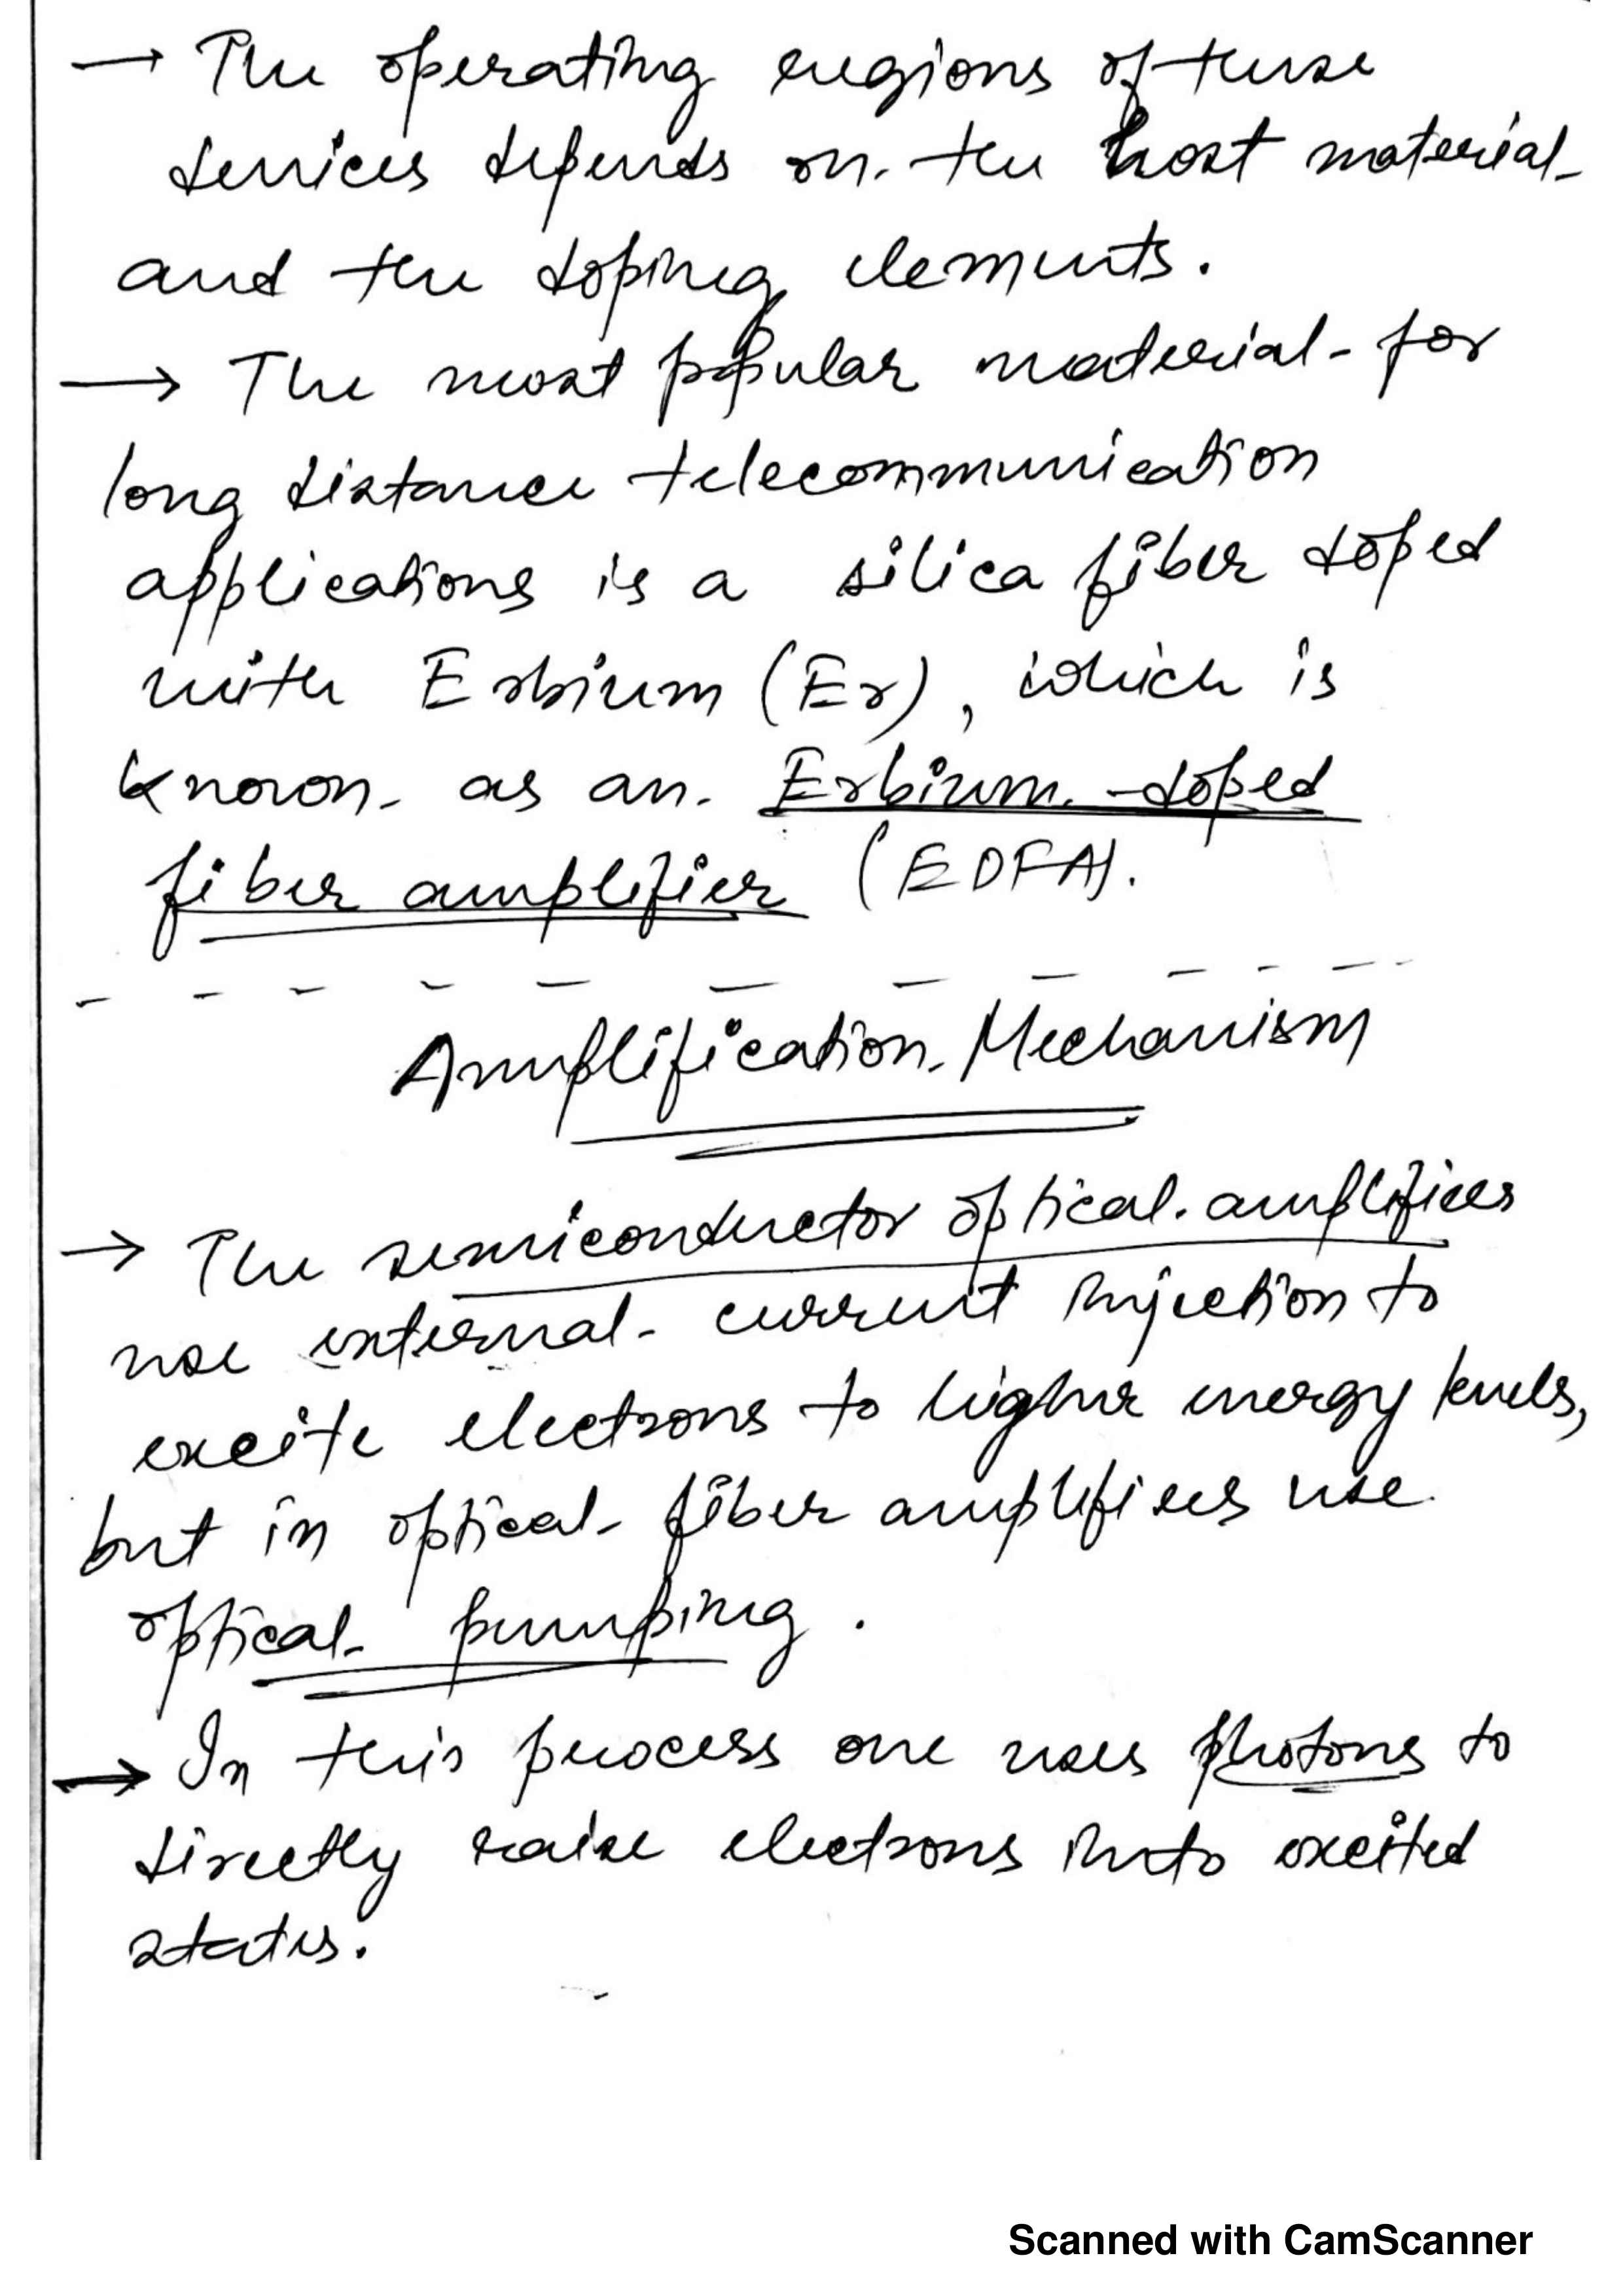 → The operating regions of these
devices depends on the host material
and the doping elements.
→ The most popular material for
long distance telecommunication
applications is a silica fiber doped
with Erbium (Er), which is
known as an Erbium-doped
fiber amplifier (EDFA).
Amplification Mechanism
→ The semiconductor optical amplifiers
use external current injection to
excite electrons to higher energy levels,
but in optical fiber amplifiers use
optical pumping.
→ In this process one uses photons to
directly raise electrons into excited
states.
Scanned with CamScanner